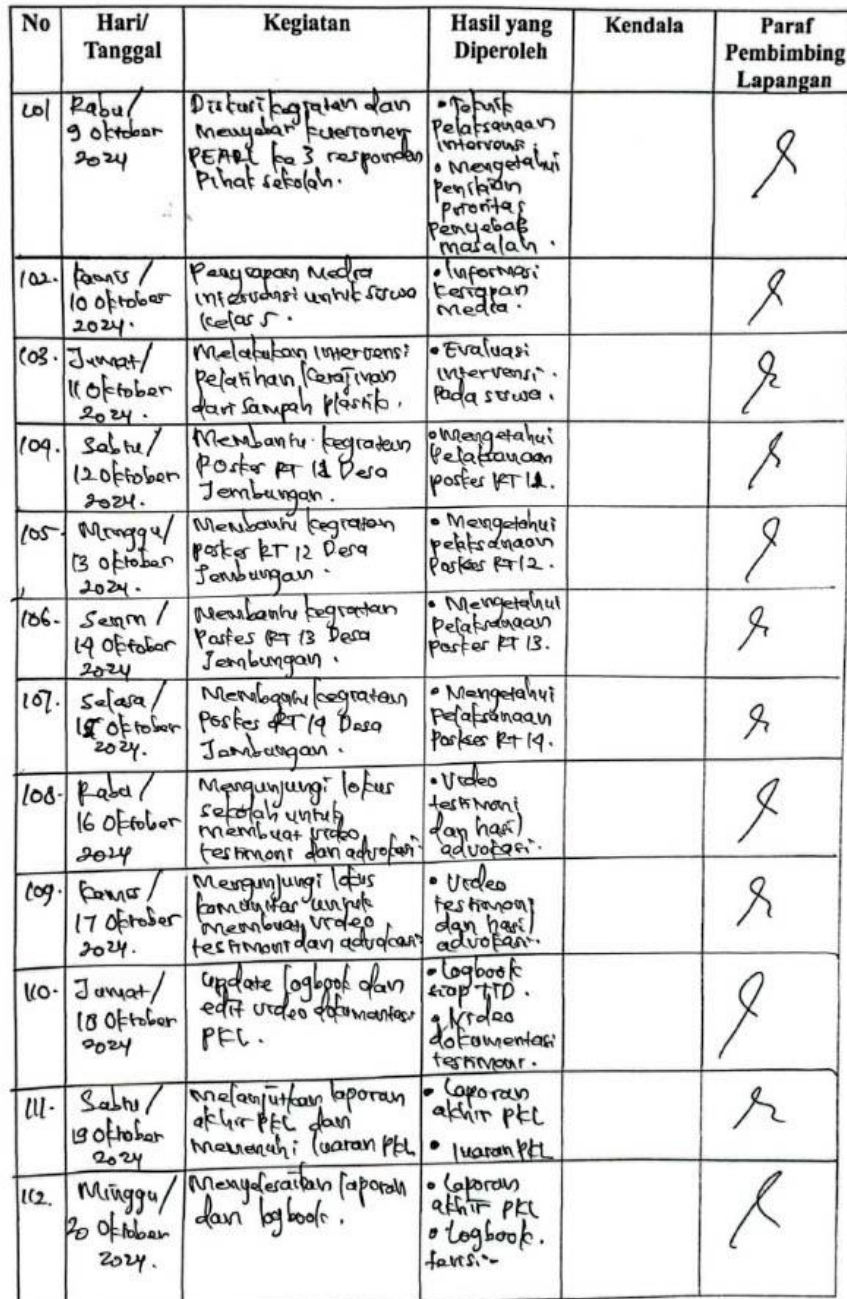 No Hari/ Tanggal Kegiatan Hasil yang Diperoleh Kendala Paraf Pembimbing Lapangan
101 Rabu/
9 Oktober
2024
Diskusi kegiatan dan
menyebar kuesioner
PEARL ke 3 responden
Pihak sekolah.
• Teknik
pelaksanaan
intervensi.
• Mengetahui
penilaian
prioritas
penyebab
masalah.
102. Kamis/
10 Oktober
2024.
Penyiapan Media
intervensi untuk siswa
kelas 5.
• Informasi
kesiapan
media.
103. Jumat/
11 Oktober
2024.
Melakukan intervensi
pelatihan kerajinan
dari sampah plastik.
• Evaluasi
intervensi.
pada siswa.
104. Sabtu/
12 Oktober
2024.
Membantu kegiatan
Poskes RT 11 Desa
Jembungan.
• Mengetahui
pelaksanaan
poskes RT 11.
105. Minggu/
13 Oktober
2024.
Membantu kegiatan
poskes RT 12 Desa
Jembungan.
• Mengetahui
pelaksanaan
Poskes RT 12.
106. Senin/
14 Oktober
2024
Membantu kegiatan
Poskes RT 13 Desa
Jembungan.
• Mengetahui
pelaksanaan
poskes RT 13.
107. Selasa/
15 Oktober
2024.
Membantu kegiatan
Poskes RT 14 Desa
Jembungan.
• Mengetahui
pelaksanaan
Poskes RT 14.
108. Rabu/
16 Oktober
2024
Mengunjungi lokus
sekolah untuk
membuat video
testimoni dan advokasi
• Video
testimoni
dan hasil
advokasi.
109. Kamis/
17 Oktober
2024.
Mengunjungi lokus
komunitas untuk
membuat video
testimoni dan advokasi
• Video
testimoni
dan hasil
advokasi.
110. Jumat/
18 Oktober
2024
Update logbook dan
edit video dokumentasi
PKL.
• Logbook
siap TTD.
• Video
dokumentasi
testimoni.
111. Sabtu/
19 Oktober
2024
Melanjutkan laporan
akhir PKL dan
memenuhi luaran PKL
• Laporan
akhir PKL
• luaran PKL
112. Minggu/
20 Oktober
2024.
Menyelesaikan laporan
dan logbook.
• Laporan
akhir PKL
• Logbook.
terisi.